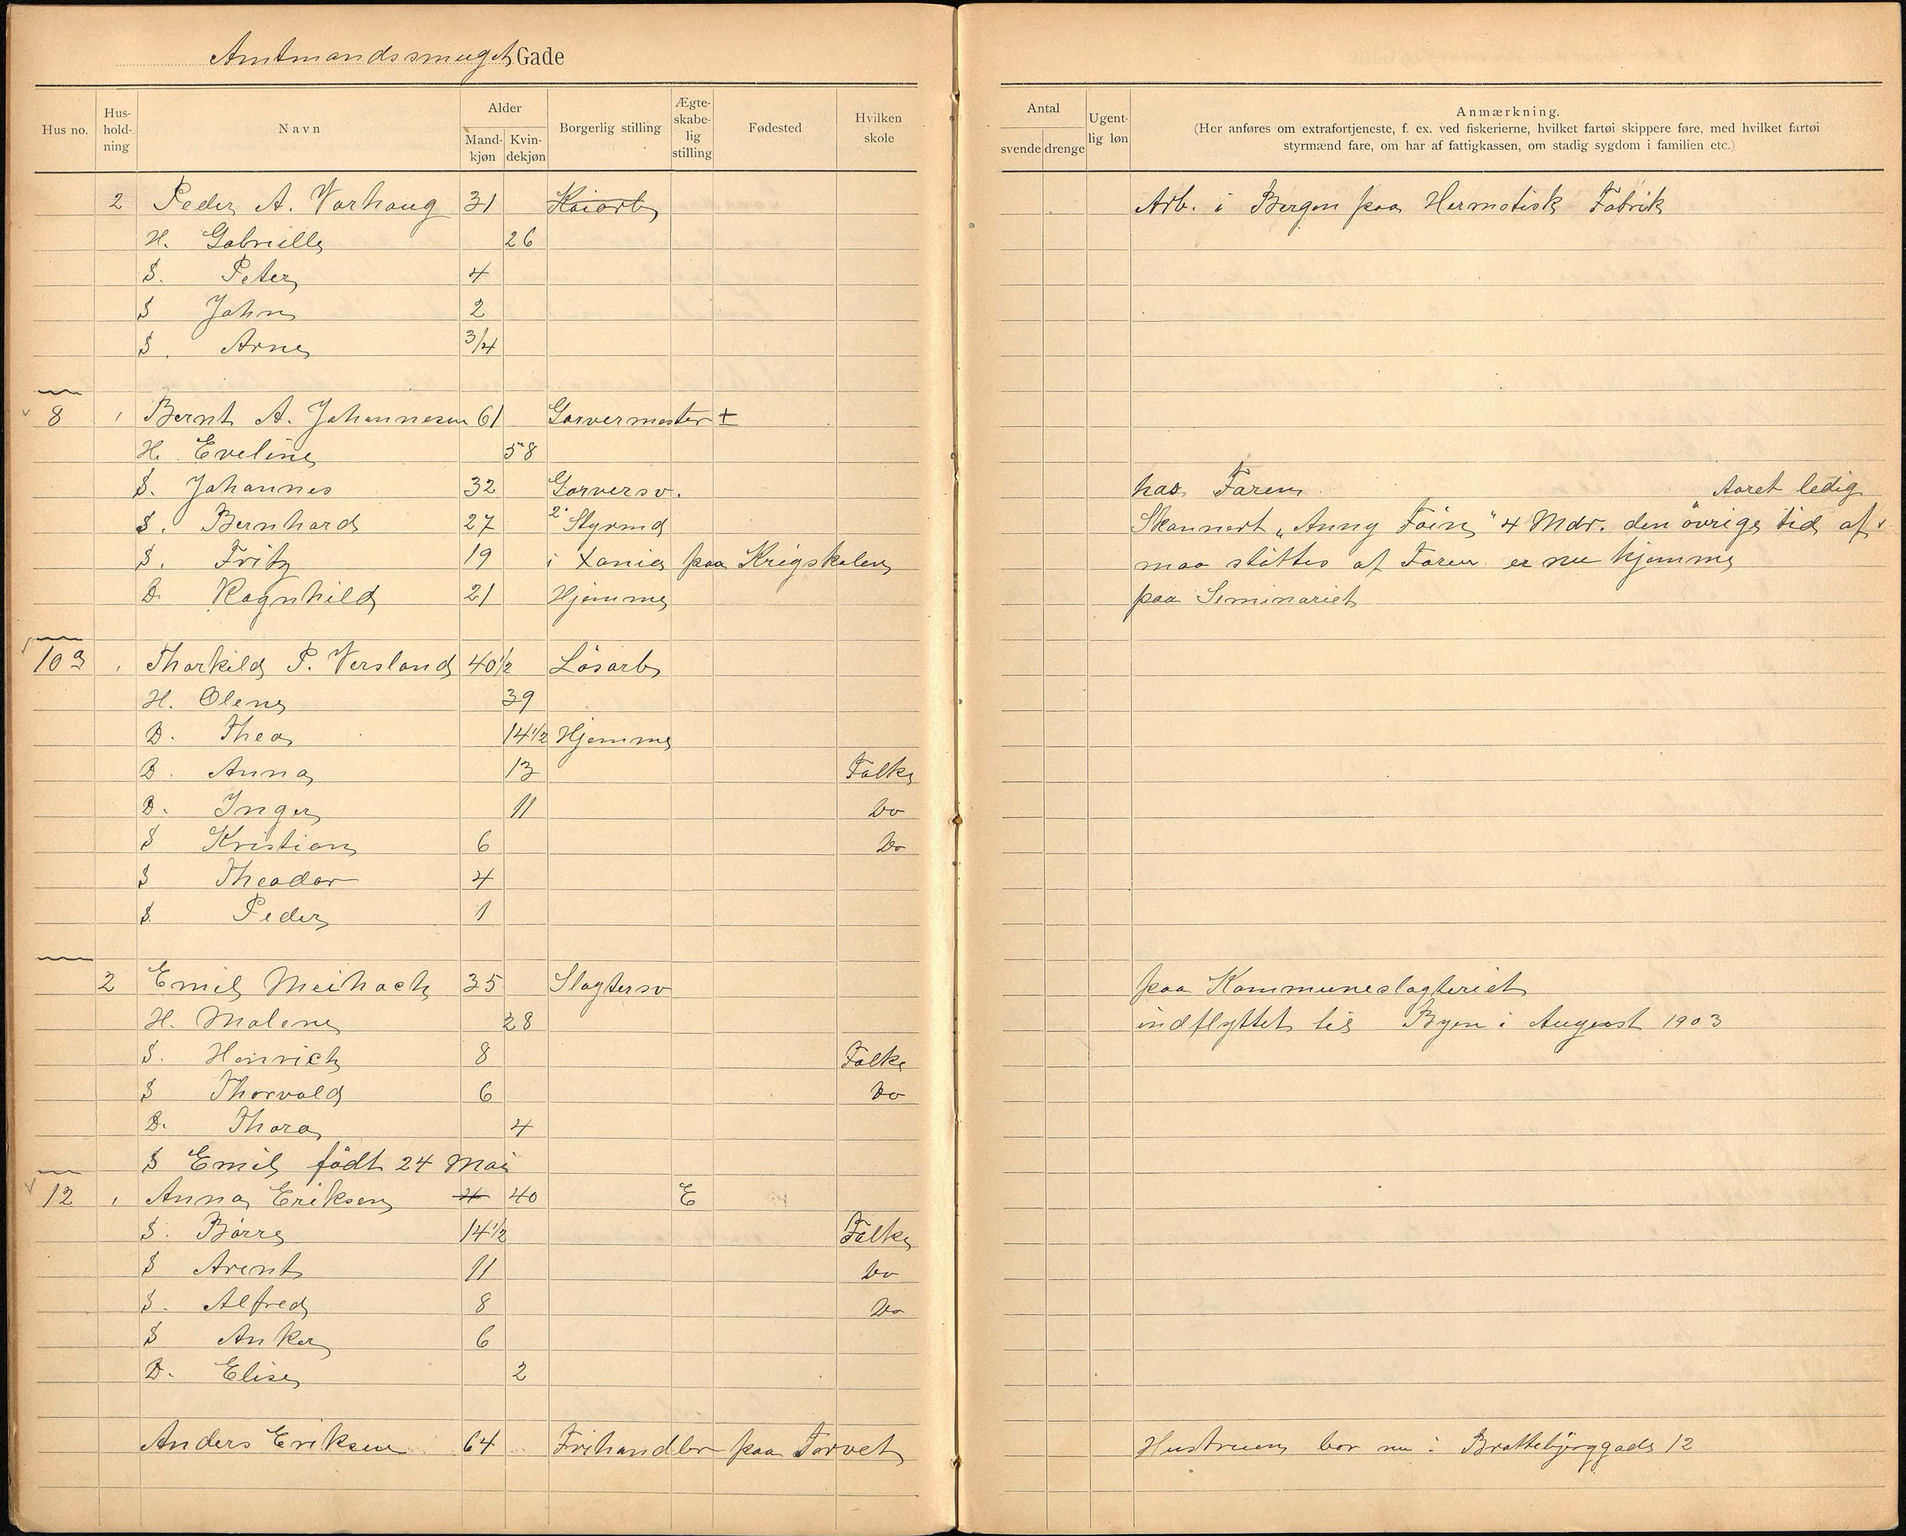 Amtmandssmuget Gade
Hus no. Hus-hold-ning Navn Alder Mand-kjøn Kvin-dekjøn Borgerlig stilling Ægte-skabe-lig stilling Fødested Hvilken skole Antal svende drenge Ugent-lig løn Anmærkning.
(Her anføres om extrafortjeneste, f. ex. ved fiskerierne, hvilket fartøi skippere føre, med hvilket fartøi
styrmænd fare, om har af fattigkassen, om stadig sygdom i familien etc.)
2 Peder A. Varhaug 31 Kaiarb Arb. i Bergen paa Hermetisk Fabrik
H. Gabrielle 26
S. Peter 4
S John 2
S. Arne 3/4
8 1 Bernt A. Johannesen 61 Garvermester +
H. Eveline 58
S. Johannes 32 Garversv. hos Faren Aaret ledig
S. Bernhard 27 2. Styrmd Skonnert „Anny Foin" 4 Mdr. den övrige tid af
S. Fritz 19 i Xania paa Krigskolen maa stöttes af Faren er nu hjemme
D. Ragnhild 21 Hjemme paa Seminariet
10a 1 Thorkild P. Versland 40 1/2 Lösarb
H. Olene 39
D. Thea 14 1/2 Hjemme
D. Anna 13 Folke
D. Inger 11 Do
S Kristian 6 Do
S Theodor 4
S. Peder 1
2 Emil Meihack 35 Slagtersv paa Kommuneslagteriet
H. Malene 28 indflyttet til Byen i August 1903
S. Henrich 8 Folke
S Thorvald 6 Do
D. Thora 4
S Emil født 24 Mai
12 1 Anna Eriksen 40 E
S. Børre 14 1/2 Folke
S Arent 11 Do
S. Alfred 8 Do
S Anker 6
D. Elise 2
Anders Eriksen 64 Frihandler paa Torvet Hustruen bor nu i Brattebjerggade 12